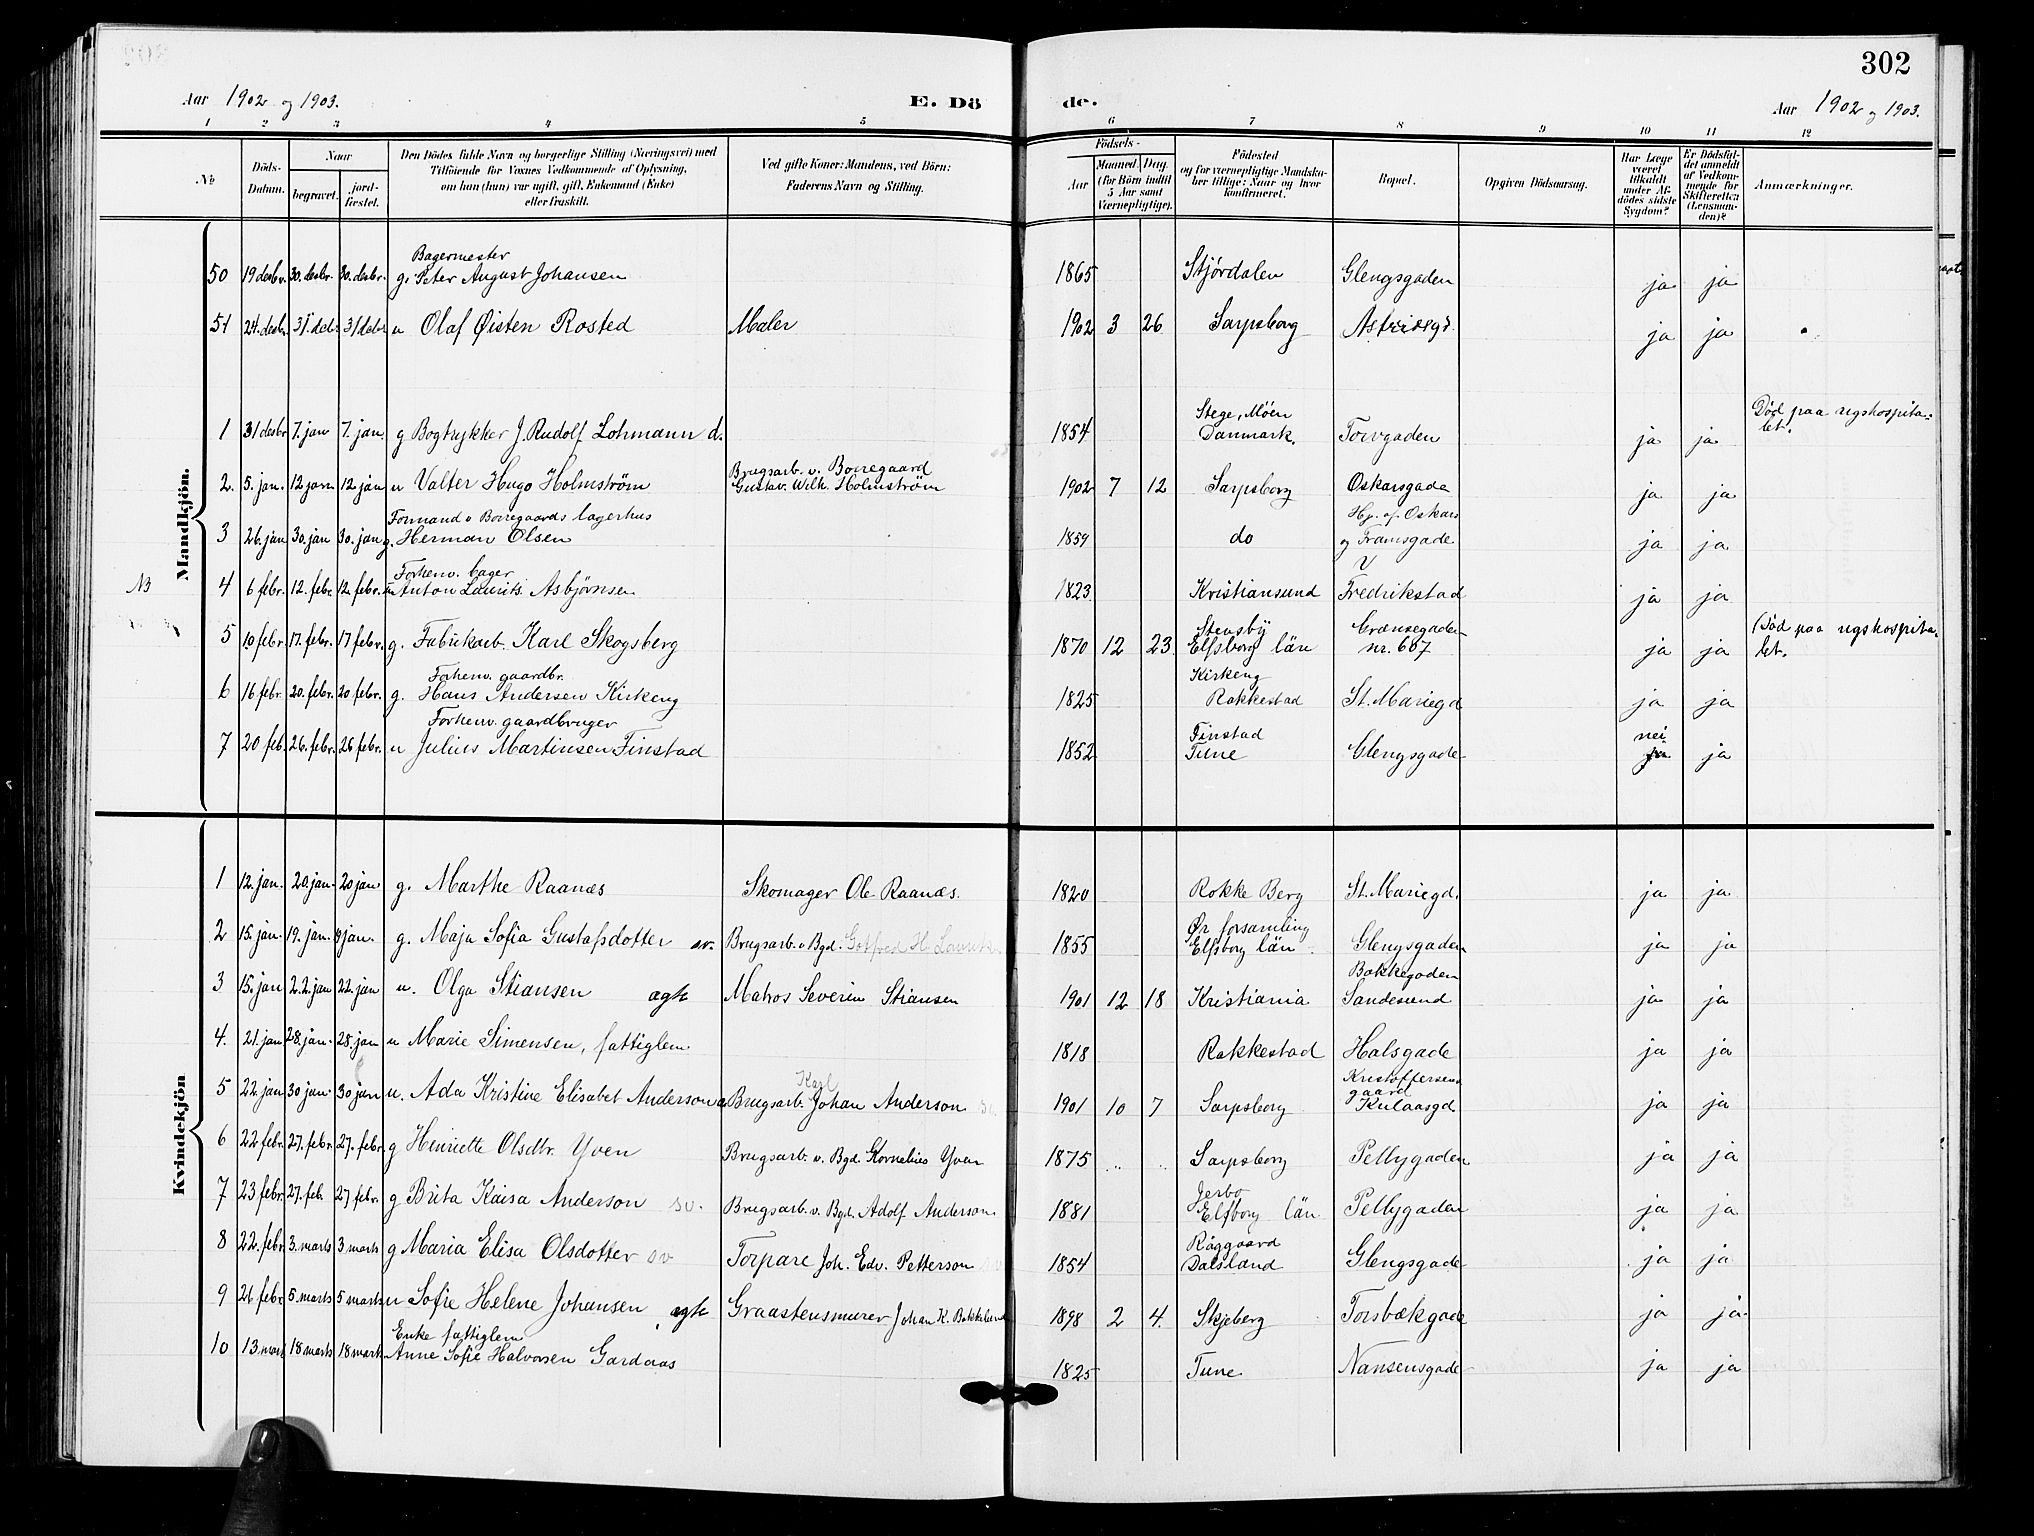 302
Aar 1902 og 1903.
E. Dö
de.
Aar 1902 og 1903.
1 2 3 4 5 6 7 8 9 10 11 12
№
Döds-
Datum.
Naar
begravet.
jord-
fæstet.
Den Dödes fulde Navn og borgerlige Stilling (Næringsvei) med
Tilföiende for Voxnes Vedkommende af Oplysning,
om han (hun) var ugift, gift, Enkemand (Enke)
eller fraskilt.
Ved gifte Koner: Mandens, ved Börn:
Faderens Navn og Stilling.
Födsels-
Aar
Maaned. Dag.
(for Börn indtil
5 Aar samt
Værnepligtige).
Födested
og for værnepligtige Mandska-
ber tillige: Naar og hvor
konfirmeret.
Bopæl.
Opgiven Dödsaarsag.
Har Læge
været
tilkaldt
under Af-
dödes sidste
Sygdom?
Er Dödsfal-
det anmeldt
af Vedkom-
mende for
Skifteretten
(Lensman-
den)?
Anmærkninger.
Mandkjön.
Bagermester
50 19 desbr. 30. desbr. 30. desbr. g. Peter August Johansen 1865 Stjørdalen Glengsgaden ja ja
51 24. desbr. 31. debr 31 debr u Olaf Øisten Rosted Maler 1902 3 26 Sarpsborg Astridsgd. ja ja
Stege, Møen Død paa rigshospita-
1 31 desbr 7. jan 7. jan. g Bogtrykker J. Rudolf Lohmann d. 1854 Danmark. Torvgaden ja ja let.
Brugsarb. v. Borregaard
2. 5. jan. 12 jan 12 jan u Valter Hugo Holmström Gustav. Wilh. Holmström 1902 7 12 Sarpsborg Oskarsgade ja ja
Formand v Borregaards lagerhus Hj. af. Oskars
3 26. jan 30. jan 30. jan g. Herman Olsen 1859 do og Framsgade ja ja
Forhenv. bager
NB 4 6 febr. 12. febr 12. febr. Anton Laurits. Asbjørnsen 1823 Kristiansund Fredrikstad ja ja
Stensby Grænsegaden Død paa rigshospita-
5 10 febr. 17. febr. 17 febr. g. Fabrikarb. Karl Skogsberg 1870 12 23 Elfsborg län nr. 667 ja ja let.
Forhenv. gaardbr. Kirkeng
6 16 febr. 20. febr. 20 febr. g. Hans Andersen Kirkeng 1825 Rakkestad St. Mariegd ja ja
Forhenv. gaardbruger Finstad nei
7 20 feb. 26. febr. 26 febr. u Julius Martinsen Finstad 1852 Tune Glengsgade ja ja
Kvindekjön
1 12. jan. 20. jan. 20 jan g. Marthe Raanæs Skomager Ole Raanæs. 1820 Rokke Berg St. Mariegd. ja ja
Ør forsamling
2 15. jan. 19. jan. g. Maja Sofia Gustafsdotter sv. Brugsarb. v Bgd. Gotfred H. 1855 Elfsborg län Glengsgaden ja ja
Bakkegaden
3 15. jan 22. jan 22. jan u. Olga Stiansen ægte Matros Severin Stiansen 1901 12 18 Kristiania Sandesund ja ja
4. 21. jan 28. jan. 28. jan u Marie Simensen, fattiglem 1818 Rakkestad Halsgade ja ja
Karl Kristoffersens
gaard
5 22. jan 30 jan. 30 jan u. Ada Kristine Elisabet Anderson Brugsarb. Johan Anderson sv. 1901 10 7 Sarpsborg Kulaasgd ja ja
6 22 febr. 27. febr. 27. febr. g Henriette Olsdtr. Yven Brugsarb. v. Bgd. Kornelius Yven 1875 „ „ Sarpsborg Pellygaden ja ja
Jerbo
7 23 febr. 27. feb. 27 febr. g Brita Kaisa Anderson sv. Brugsarb. v. Bgd. Adolf Anderson 1881 Elfborg län Pellygaden ja ja
Råggaard
8 22. febr. 3. marts 3 marts g Maria Elisa Olsdotter sv Torpare Joh. Edv. Petterson sv 1854 Dalsland Glengsgade ja ja
9 26 febr 5. marts 5 marts u Sofie Helene Johansen, ægte Graastensmurer Johan K. Bakkelund 1898 2 4. Skjeberg Torsbækgade ja ja
Enke fattiglem
10 13. mart 18 marts 18 marts Anne Sofie Halvorsen Gardaas 1825 Tune Nansensgade ja ja